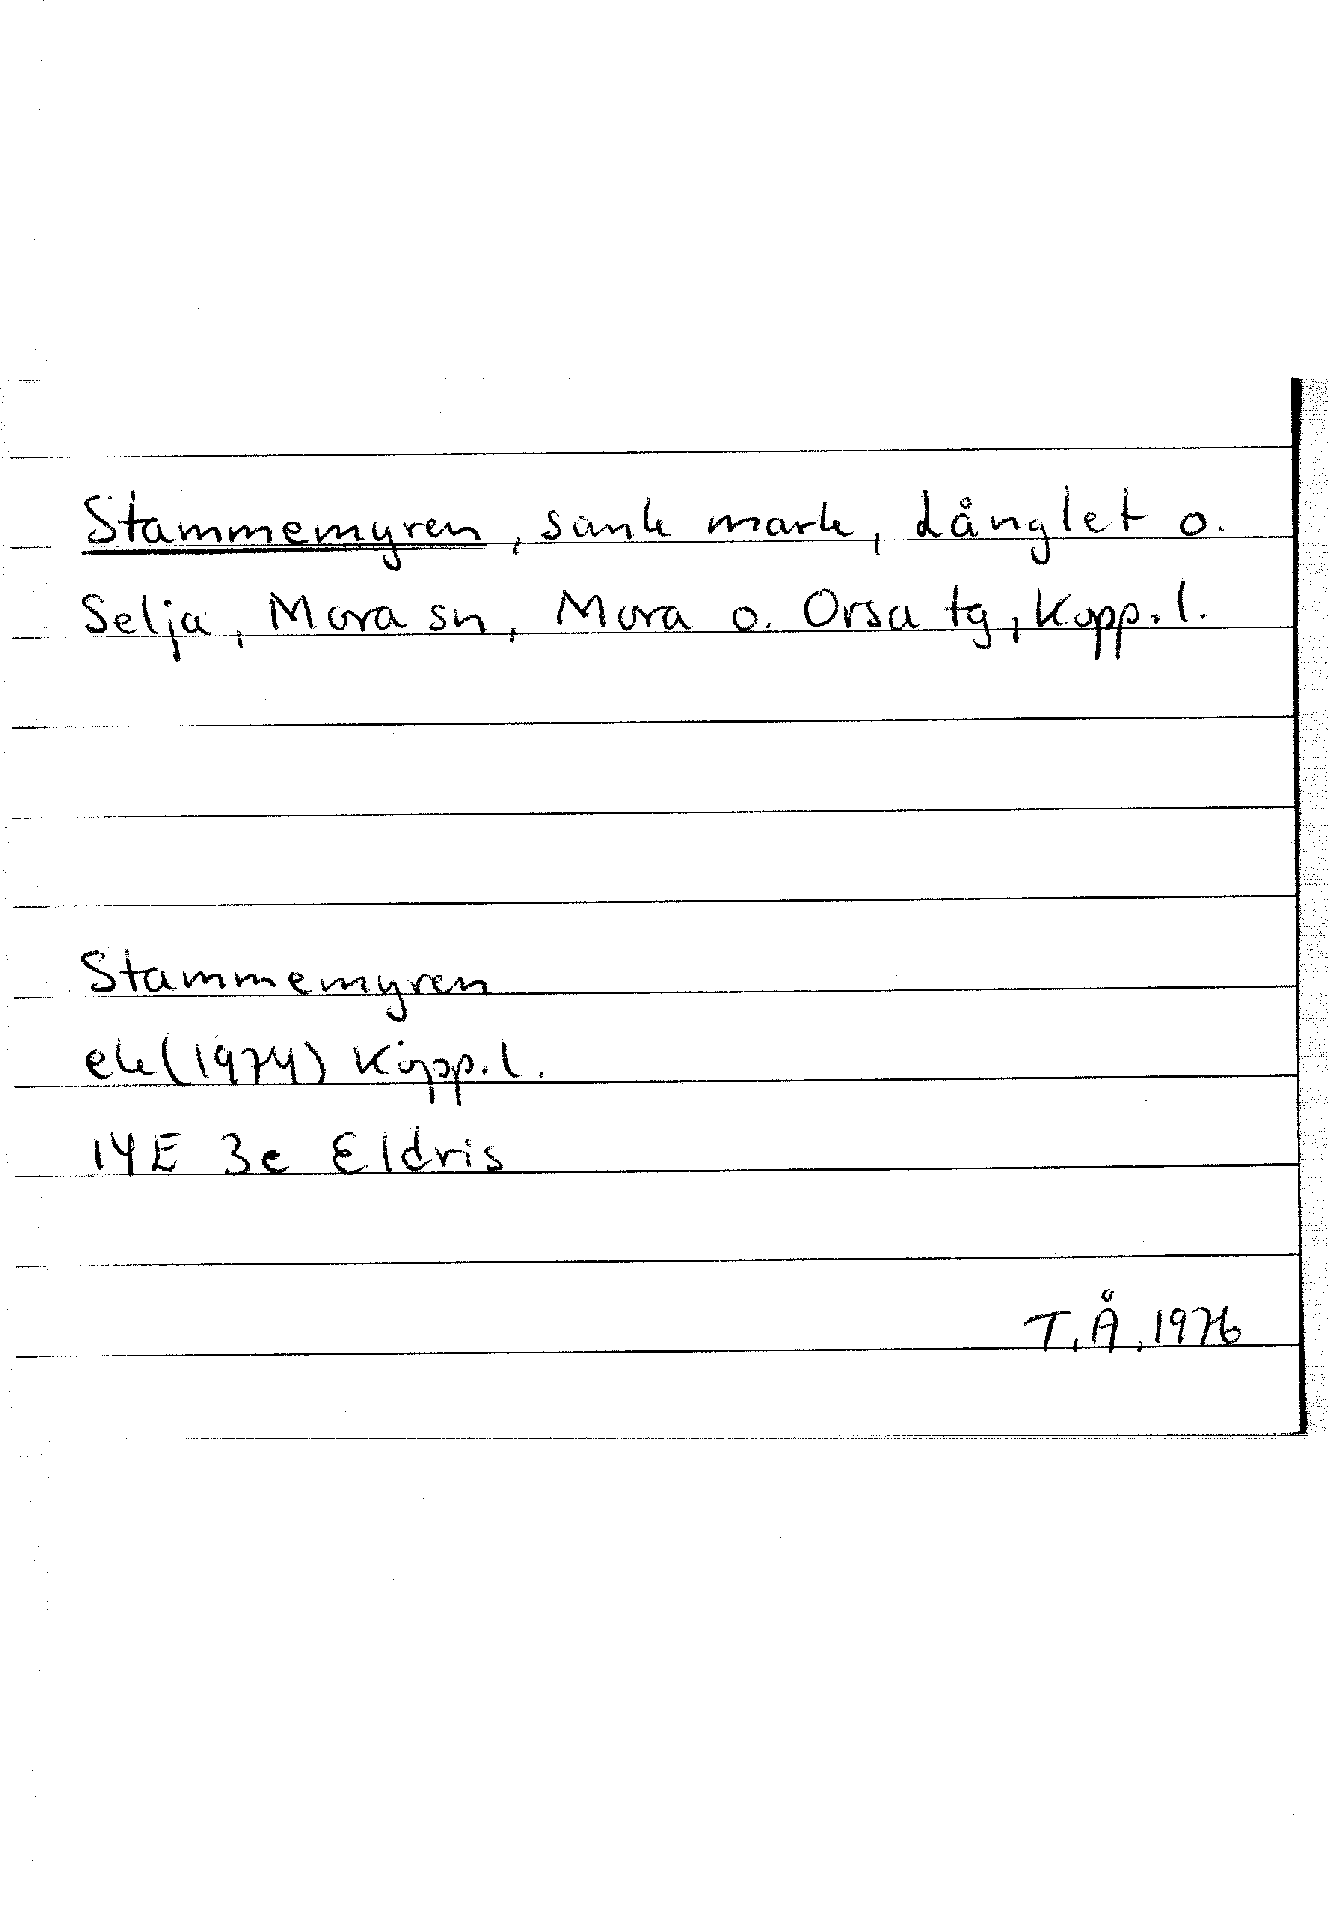 Stammemyren, sank mark, Långlet o.
Selja, Mora sn, Mora o. Orsa tg, Kopp. l.
Stammemyren
ek (1974) Kopp. l.
14E 3e Eldris
T. Å. 1976